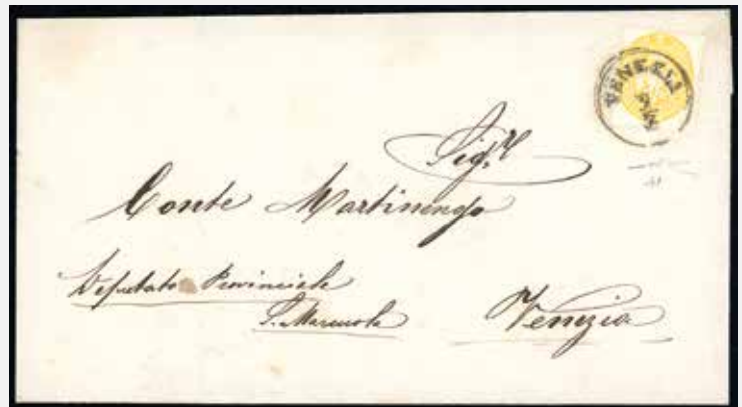 VENEZIA
Sig.r
Conte Martinengo
Deputato Provinciale
S. Marcuola
Venezia